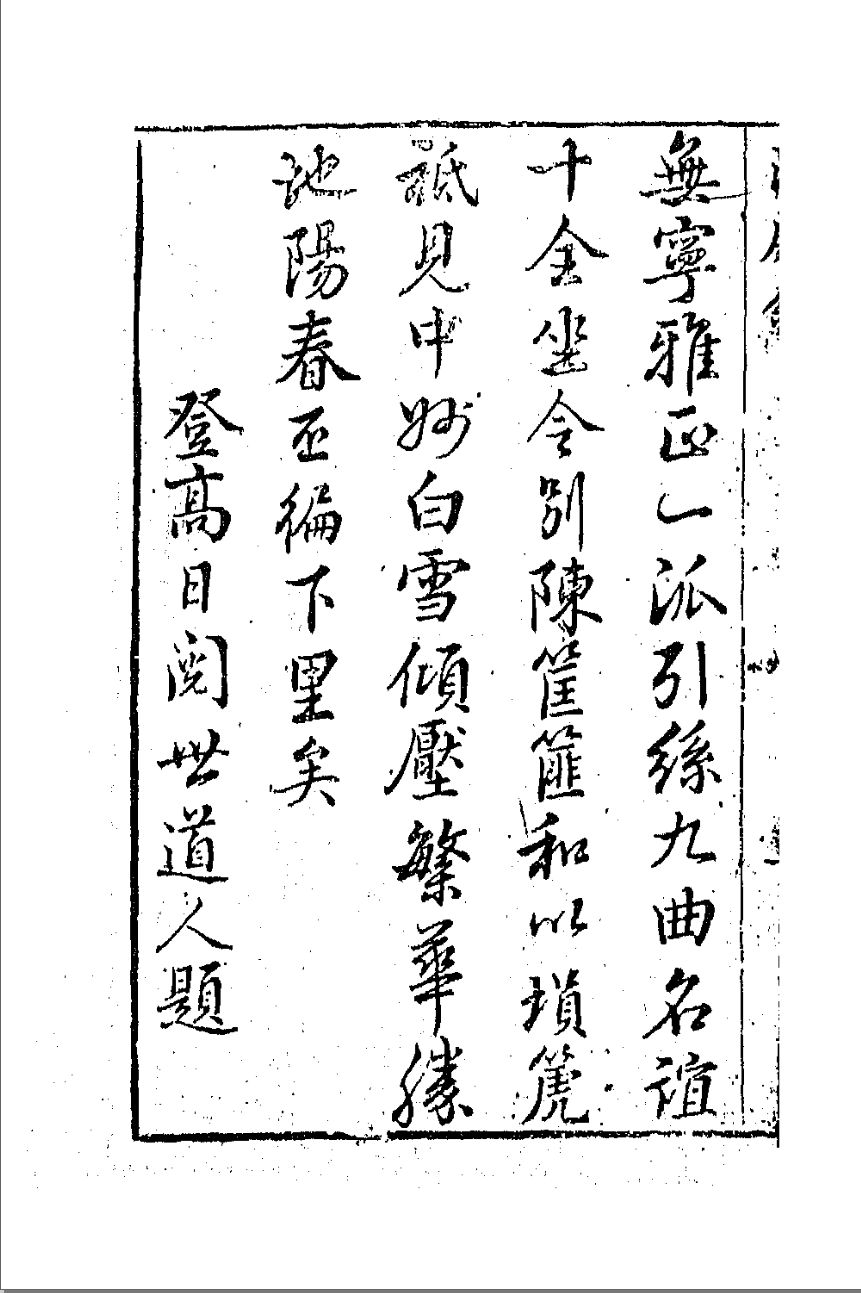 無寧雅正一派引絲九曲名誼
十金坐令別陳筐篚和以瑣箎
祇見中妙白雪傾壓繁華勝
地陽春丕徧下里矣
登高日閱世道人題